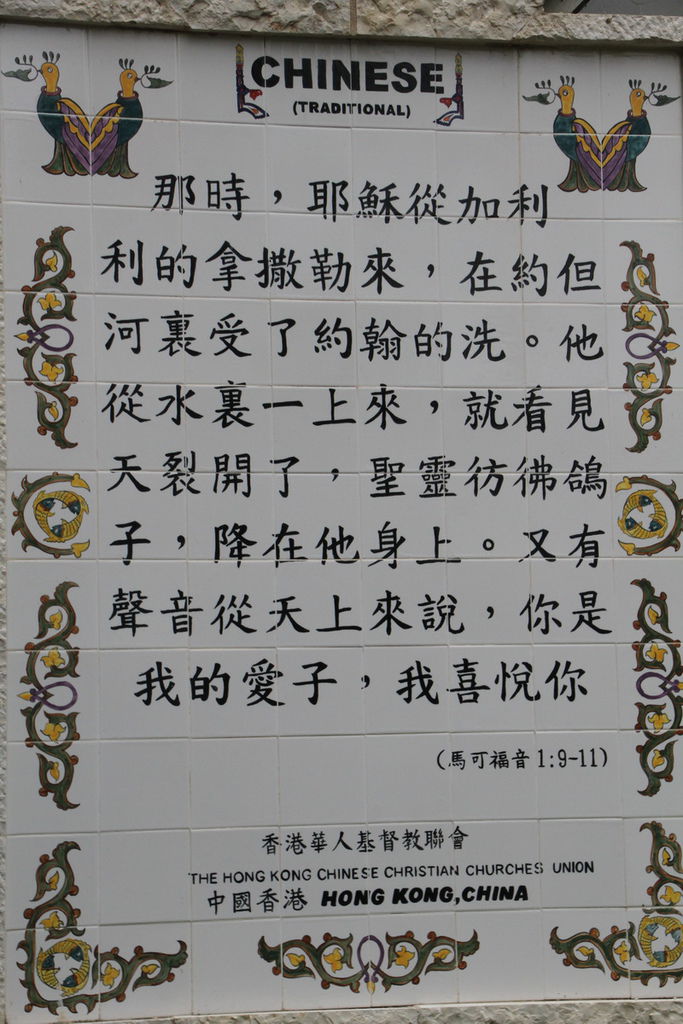 CHINESE
(TRADITIONAL)
那時，耶穌從加利
利的拿撒勒來，在約但
河裏受了約翰的洗。他
從水裏一上來，就看見
天裂開了，聖靈彷彿鴿
子，降在他身上。又有
聲音從天上來說，你是
我的愛子，我喜悅你
(馬可福音 1:9-11)
香港華人基督教聯會
THE HONG KONG CHINESE CHRISTIAN CHURCHES UNION
中國香港 HONG KONG,CHINA